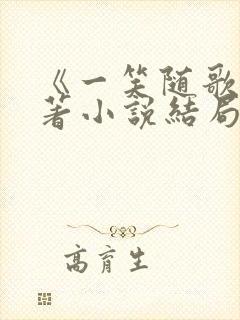 《一笑随歌
著小説結局
高育生